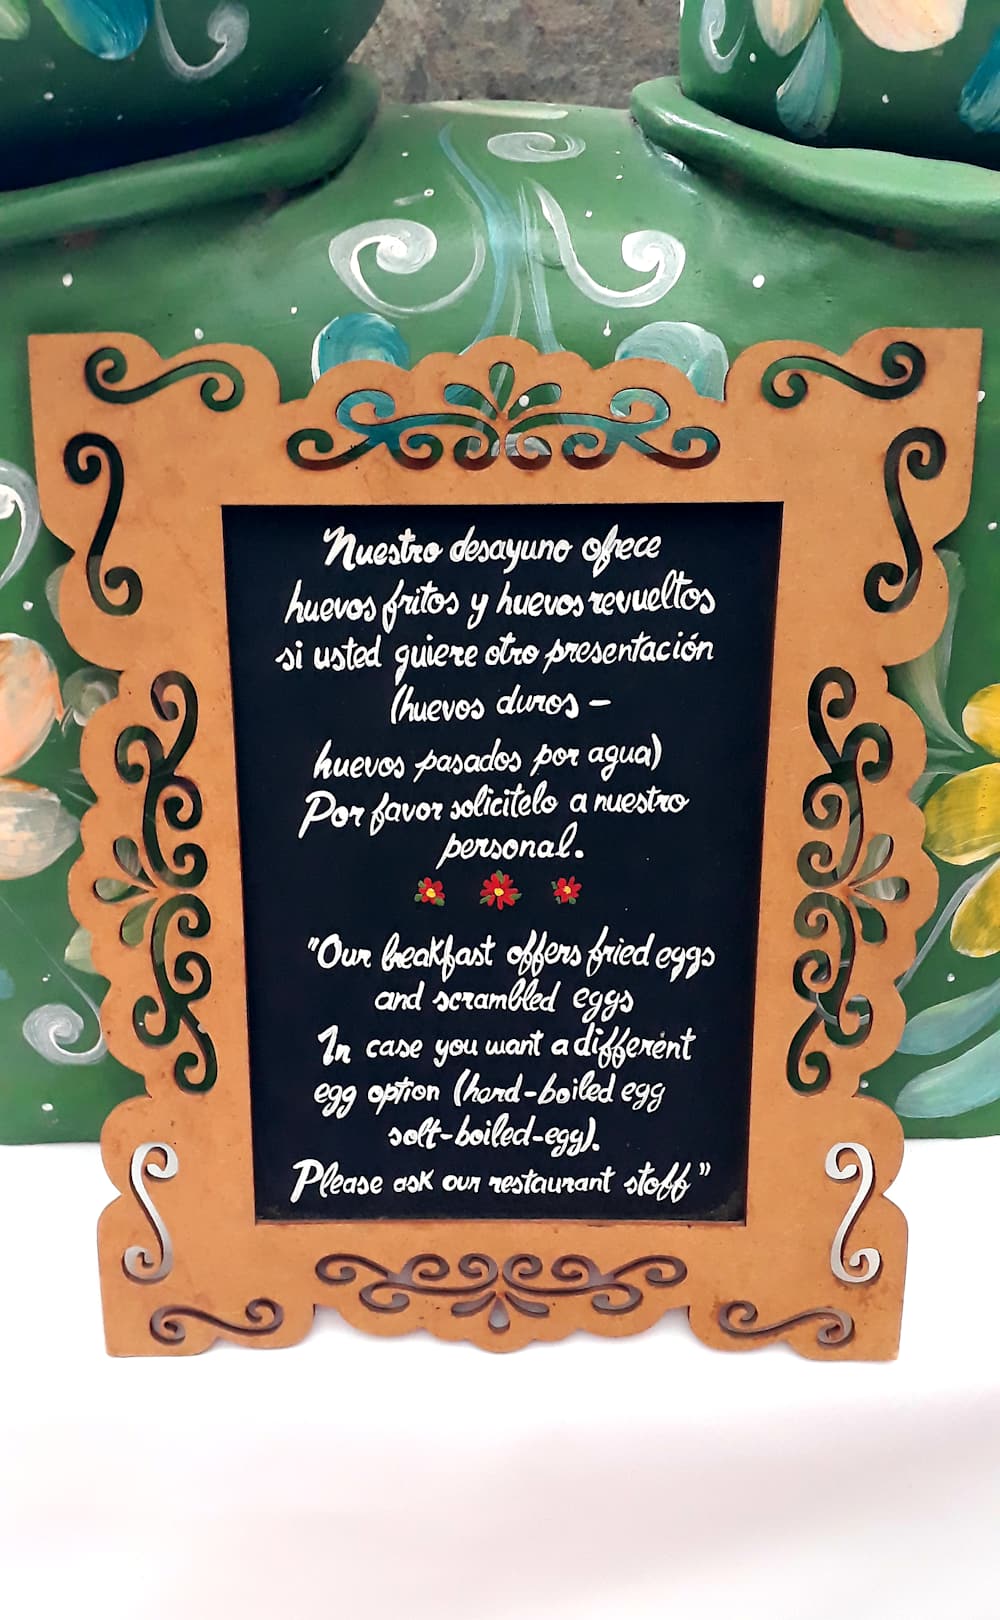 Nuestro desayuno ofrece
huevos fritos y huevos revueltos
si usted quiere otro presentación
(huevos duros -
huevos pasados por agua)
Por favor solicitelo a nuestro
personal.
"Our breakfast offers fried eggs
and scrambled eggs
In case you want a different
egg option (hard-boiled egg
solt-boiled-egg).
Please ask our restaurant staff"